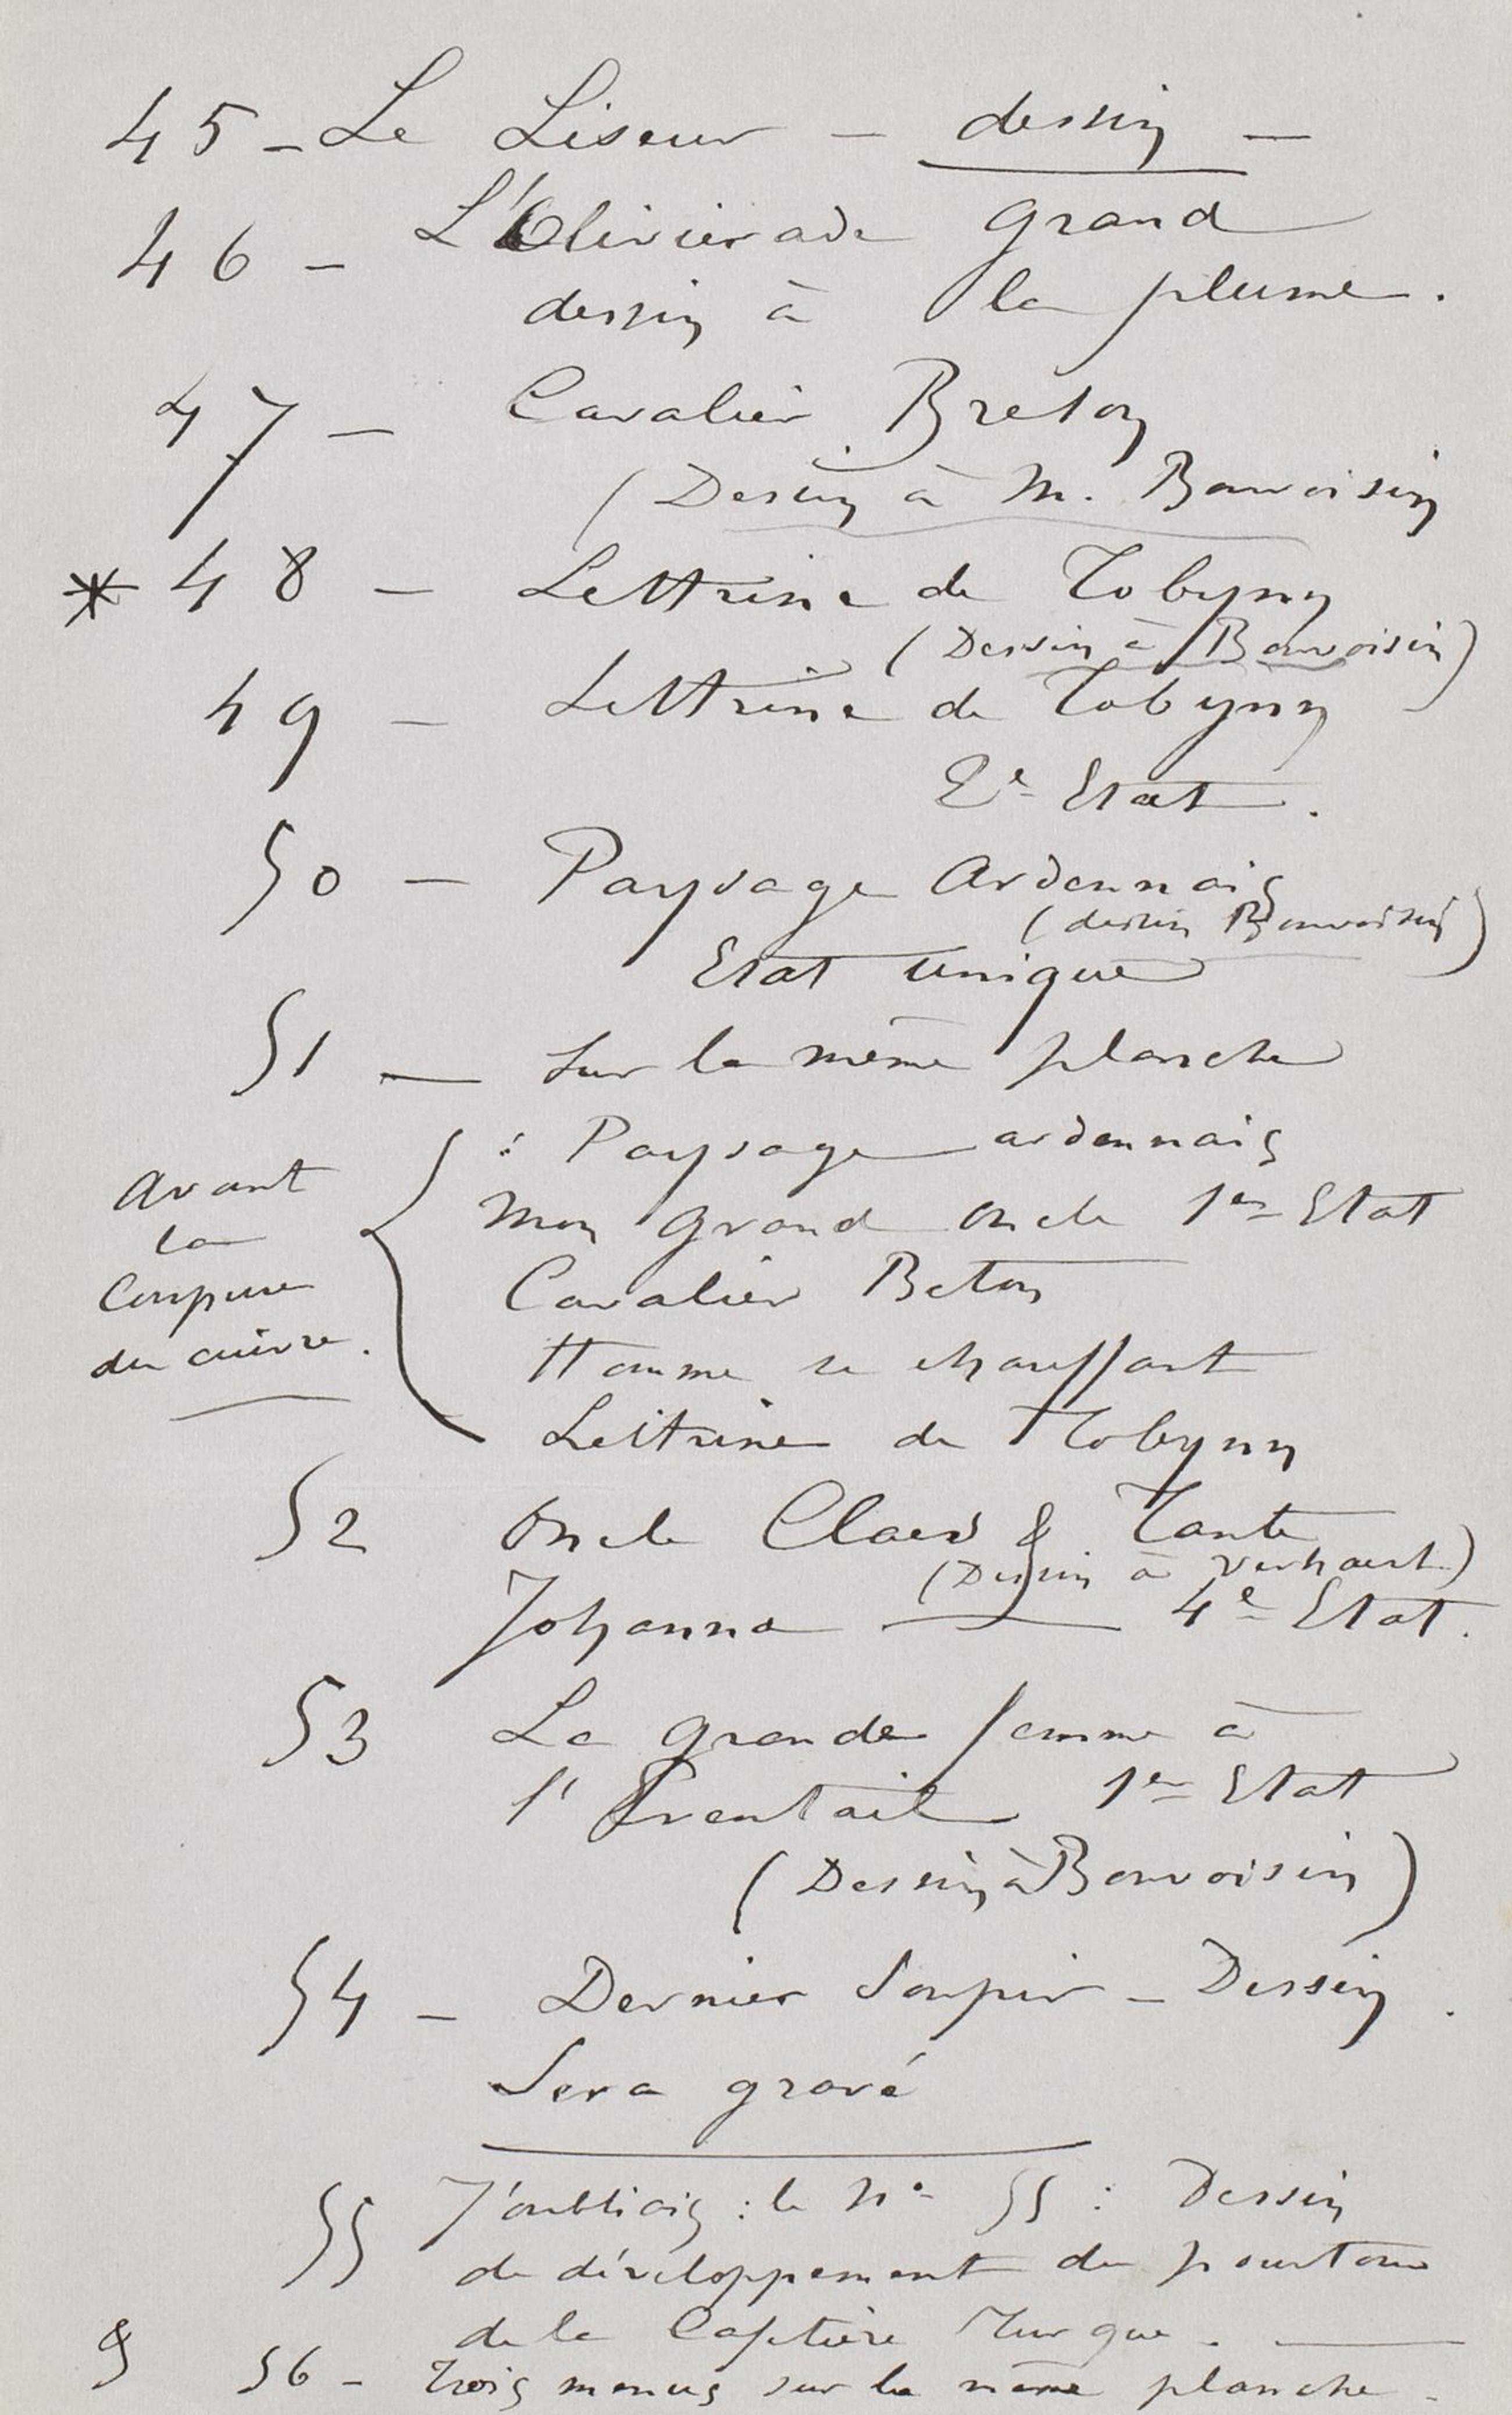 45 - Le Liseur - dessin -
46 - L'Olivierade grand
dessin à la plume.
47 - Cavalier Breton
(Dessin à M. Bonvoisin
* 48 - Lettrine de Tobynn
(Dessin à Bonvoisin)
49 - Lettrine de Tobynn
2e Etat.
50 - Paysage Ardennais
(dessin Bonvoisin)
Etat unique
51 - Sur la même planche
: Paysage ardennais
Mon grand oncle 1er Etat
Cavalier Beton
Homme se chauffant
Lettrine de Tobynn
Avant
la
Coupure
du cuivre.
52 Oncle Claes & Tante
(Dessin à Verhaert)
Johanna — 4e Etat.
53 La grande femme à
l'Eventail 1er Etat
(Dessin à Bonvoisin)
54 - Dernier Soupir - Dessin.
Sera gravé
55 J'oubliais : le No 55 : Dessin
de développement du pourtour
de la Cafetière Turque. —
& 56 - Trois menus sur la même planche -